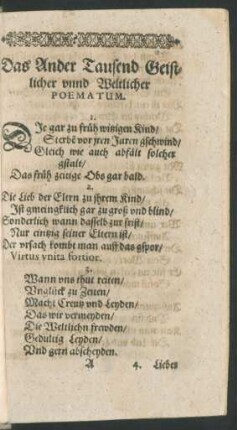 Das Ander Tausend Geist
licher vnnd Weltlicher
POEMATUM.
1.
DJe gar zu früh witzigen Kind/
Sterbē vor jren Jaren gschwind/
Gleich wie auch abfält solcher
gstalt/
Das früh zeitige Obs gar bald.
2.
Die Lieb der Eltern zu jhrem Kind/
Jst gmeingklich gar zu groß vnd blind/
Sonderlich wann dasselb zur frist/
Nur eintzig seiner Eltern ist/
Der vrsach kombt man auff das gspor/
Virtus vnita fortior.
3.
Wann vns thut reiten/
Vnglück zu Zeiten/
Macht Creutz vnd Leyden/
Das wir vermeyden/
Die Weltlichn frewden/
Gedultig Leyden/
Vnd gern abscheyden.
A 4. Lieber